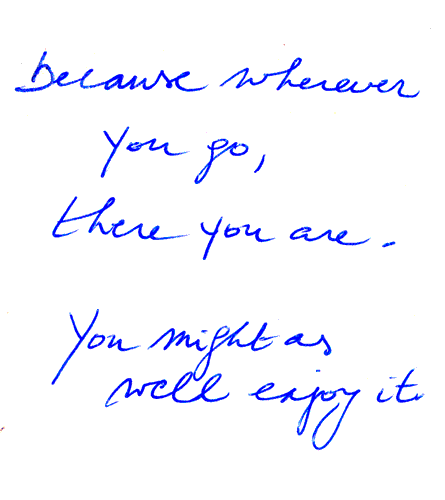 because wherever
you go,
there you are.
You might as
well enjoy it.